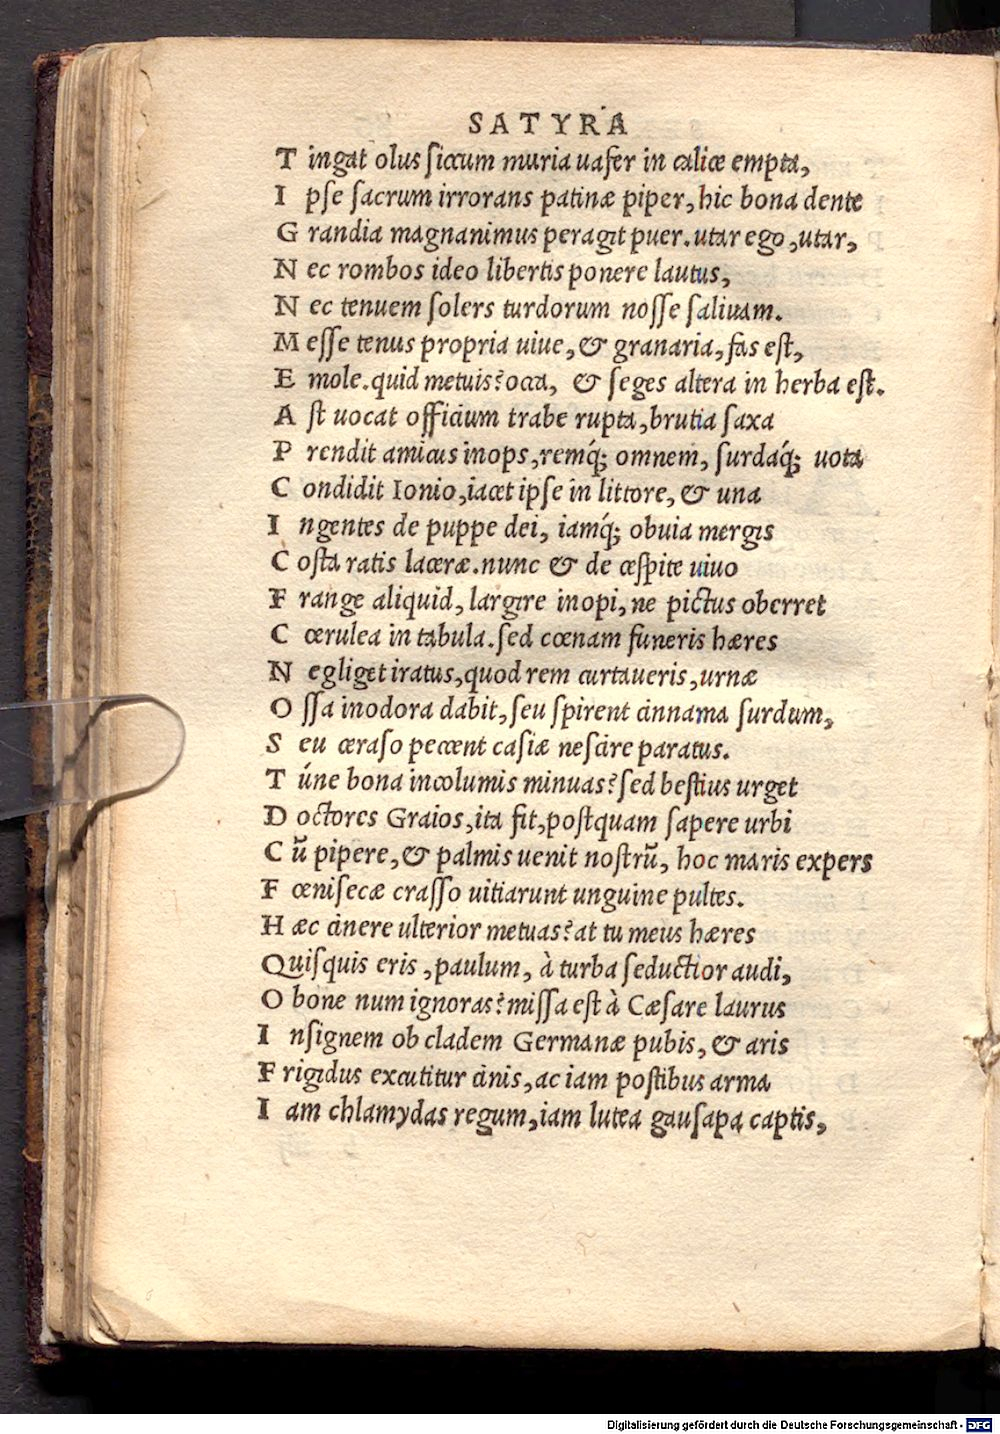 SATYRA
Tingat olus siccum muria uafer in calice empta,
Ipse sacrum irrorans patinæ piper, hic bona dente
Grandia magnanimus peragit puer. utar ego, utar,
Nec rombos ideo libertis ponere lautus,
Nec tenuem solers turdorum nosse saliuam.
Messe tenus propria uiue, & granaria, fas est,
Emole. quid metuis? occa, & seges altera in herba est.
Ast uocat officium trabe rupta, brutia saxa
Prendit amicus inops, remq́; omnem, surdaq́; uota
Condidit Ionio, iacet ipse in littore, & una
Ingentes de puppe dei, iamq́; obuia mergis
Costa ratis laceræ. nunc & de cespite uiuo
Frange aliquid, largire inopi, ne pictus oberret
Cœrulea in tabula. sed cœnam funeris hæres
Negliget iratus, quod rem curtaueris, urnæ
Ossa inodora dabit, seu spirent cinnama surdum,
Seu ceraso peccent casiæ nescire paratus.
Túne bona incolumis minuas? sed bestius urget
Doctores Graios, ita fit, postquam sapere urbi
Cũ pipere, & palmis uenit nostrũ, hoc maris expers
Fœnisecæ crasso uitiarunt unguine pultes.
Hæc cinere ulterior metuas? at tu meus hæres
Quisquis eris, paulum, à turba seductior audi,
O bone num ignoras? missa est à Cæsare laurus
Insignem ob cladem Germanæ pubis, & aris
Frigidus excutitur cinis, ac iam postibus arma
Iam chlamydas regum, iam lutea gausapa captis,
Digitalisierung gefördert durch die Deutsche Forschungsgemeinschaft - DFG